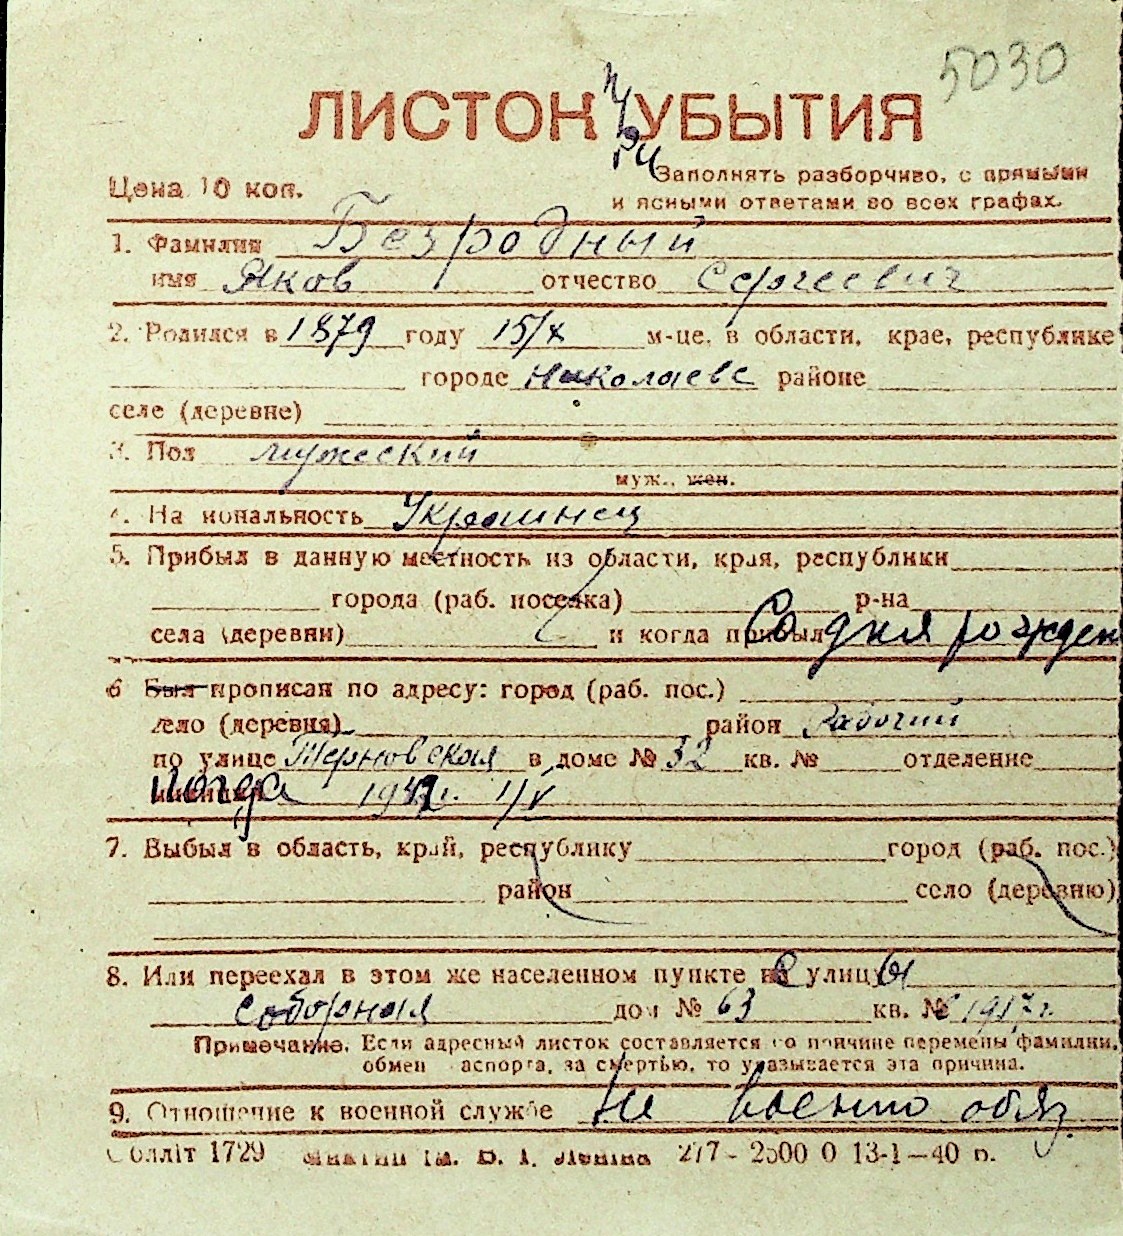 5030
ЛИСТОК УБЫТИЯ
Цена 10 коп.
Заполнять разборчиво, с прямыми
и ясными ответами во всех графах.
1. Фамилия Безродный
имя Яков отчество Сергеевич
2. Родился в 1879 году 15/X м-це, в области, крае, республике
городе Николаеве районе
селе (деревне)
3. Пол мужеский
муж., жен.
4. Национальность Украинец
5. Прибыл в данную местность из области, края, республики
города (раб. поселка) р-на
села (деревни) и когда прибыл Со дня рожден
6 Был прописан по адресу: город (раб. пос.)
село (деревня) район Рабочий
по улице Терновская в доме № 32 кв. № отделение
Когда 1942г. 1/V
7. Выбыл в область, край, республику город (раб. пос.)
район село (деревню)
8. Или переехал в этом же населенном пункте с улицы
Соборная дом № 63 кв. № с 1917г.
Примечание. Если адресный листок составляется по причине перемены фамилии,
обмен паспорта, за смертью, то указывается эта причина.
9. Отношение к военной службе Не военно обяз.
Облліт 1729 ім. В. І. Леніна 277 - 2500 0 13-1-40 р.